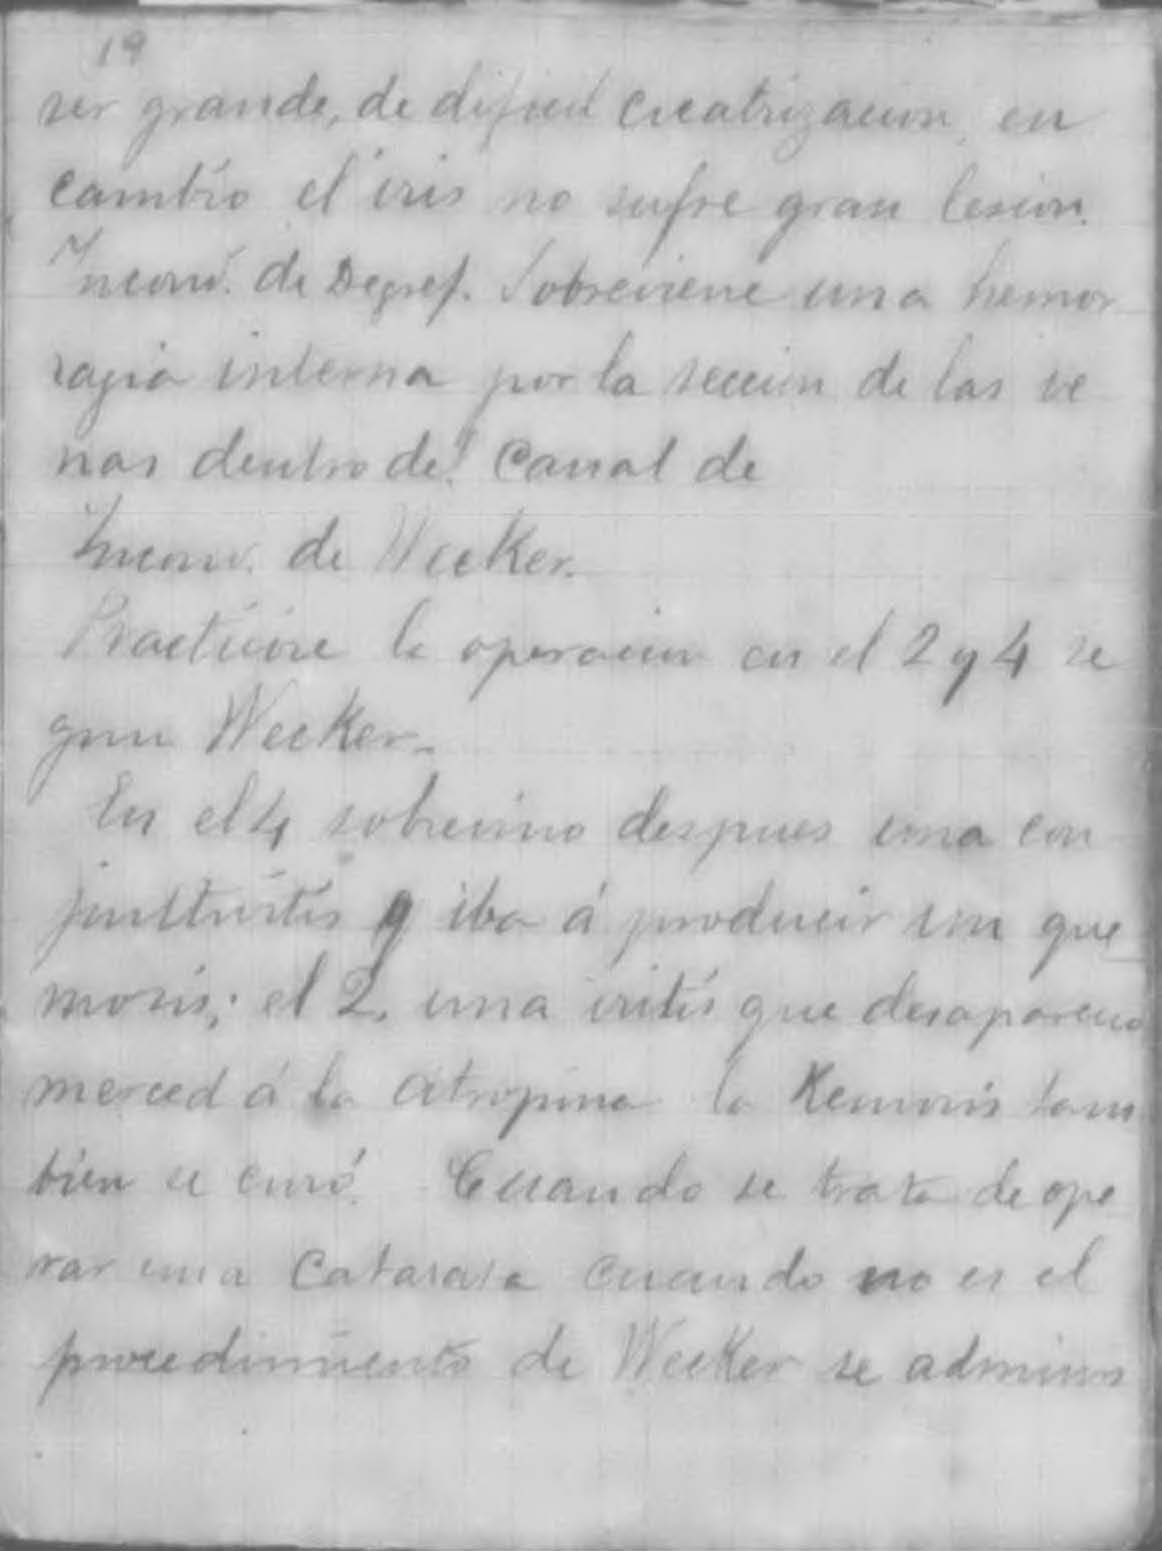 19
ser grande, de dificil cicatrizacion, en
cambio el iris no sufre gran lesion.
Inconv. de Degref. Sobreviene una hemor
ragia interna por la seccion de las ve
nas dentro del canal de
Inconv. de Wecker.
Practicóse la operacion en el 2 y 4 se
gun Wecker.
En el 4 sobrevino despues una con
juntivitis q iba á producir un que
mosis; el 2, una iritis que desaparecio
merced á la atropina la Kemosis tam
bien se curó. Cuando se trata de ope
rar una catarata cuando no es el
procedimiento de Wecker se adminis